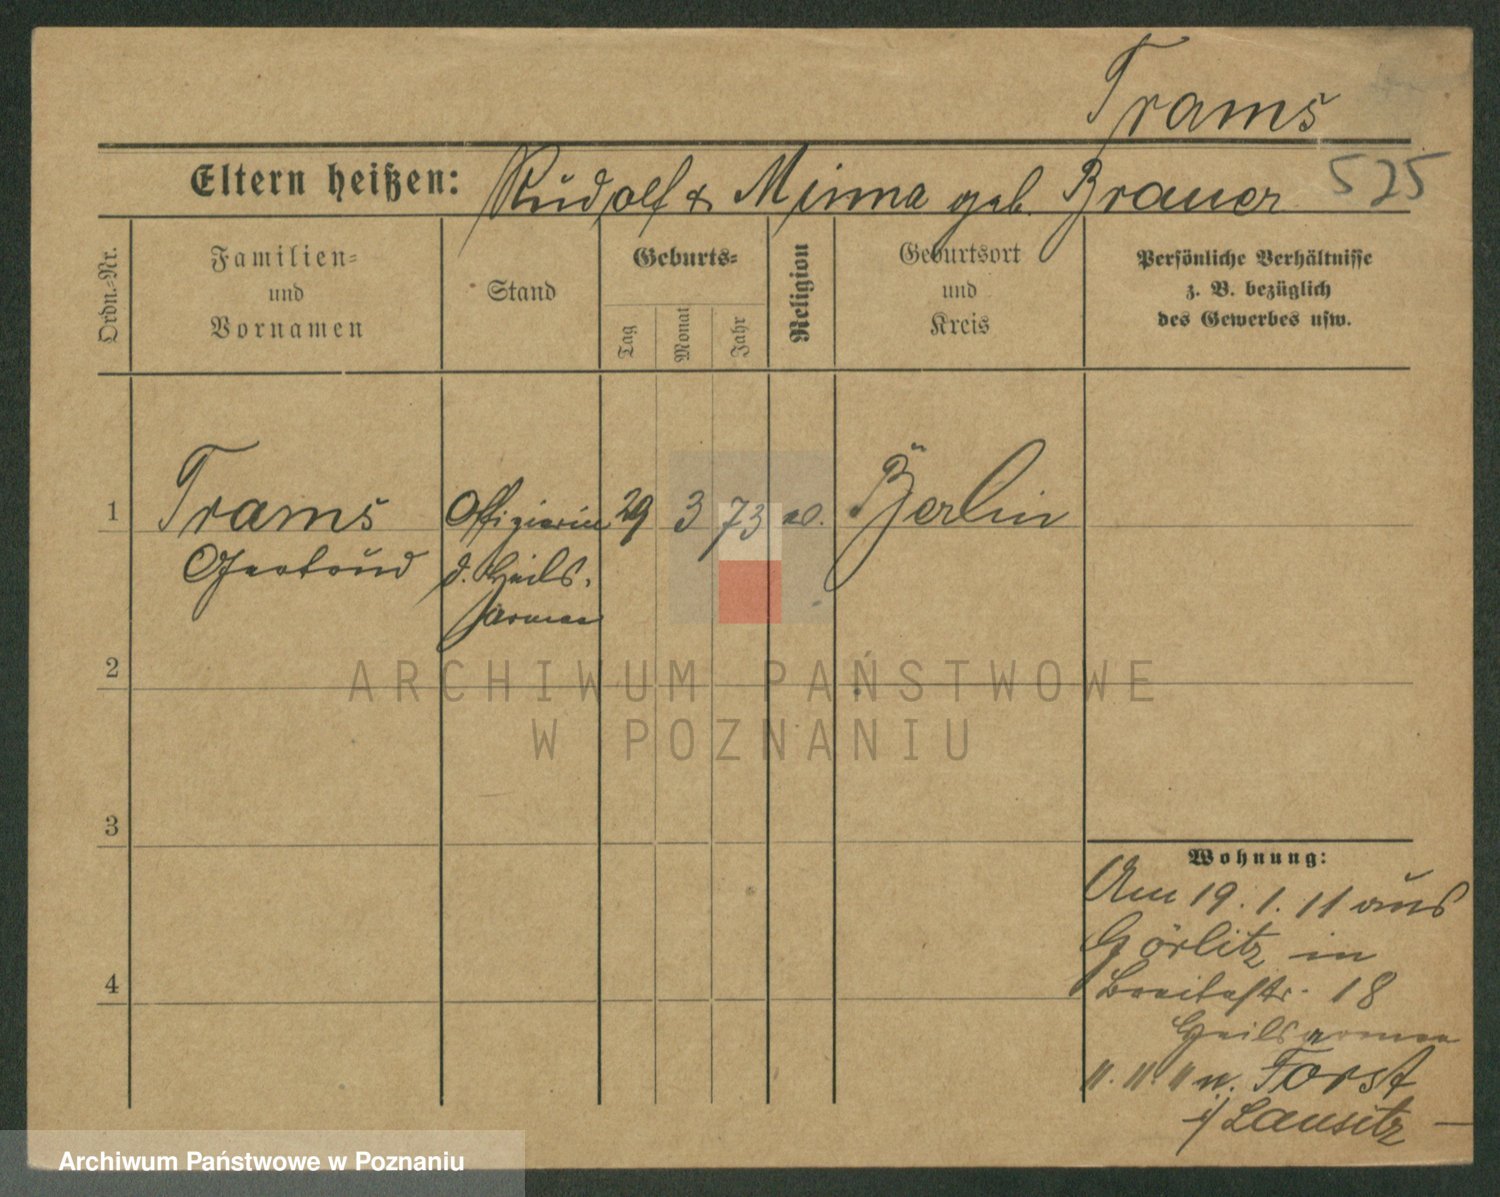 Trams
Eltern heißen: Rudolf & Minna geb. Brauer 525
Ordn.-Nr.
Familien-
und
Vornamen
Stand
Geburts-
Tag
Monat
Jahr
Religion
Geburtsort
und
Kreis
Persönliche Verhältnisse
z. B. bezüglich
des Gewerbes usw.
1 Trams Offizierin 29 3 73 ev. Berlin
Gertrud d. Heils-
armee
2
3
4
Wohnung:
Am 19.1.11 aus
Görlitz in
Breitestr. 18
Heilsarmee
11. 11. 11 n. Forst
i/ Lausitz
ARCHIWUM PAŃSTWOWE
W POZNANIU
Archiwum Państwowe w Poznaniu